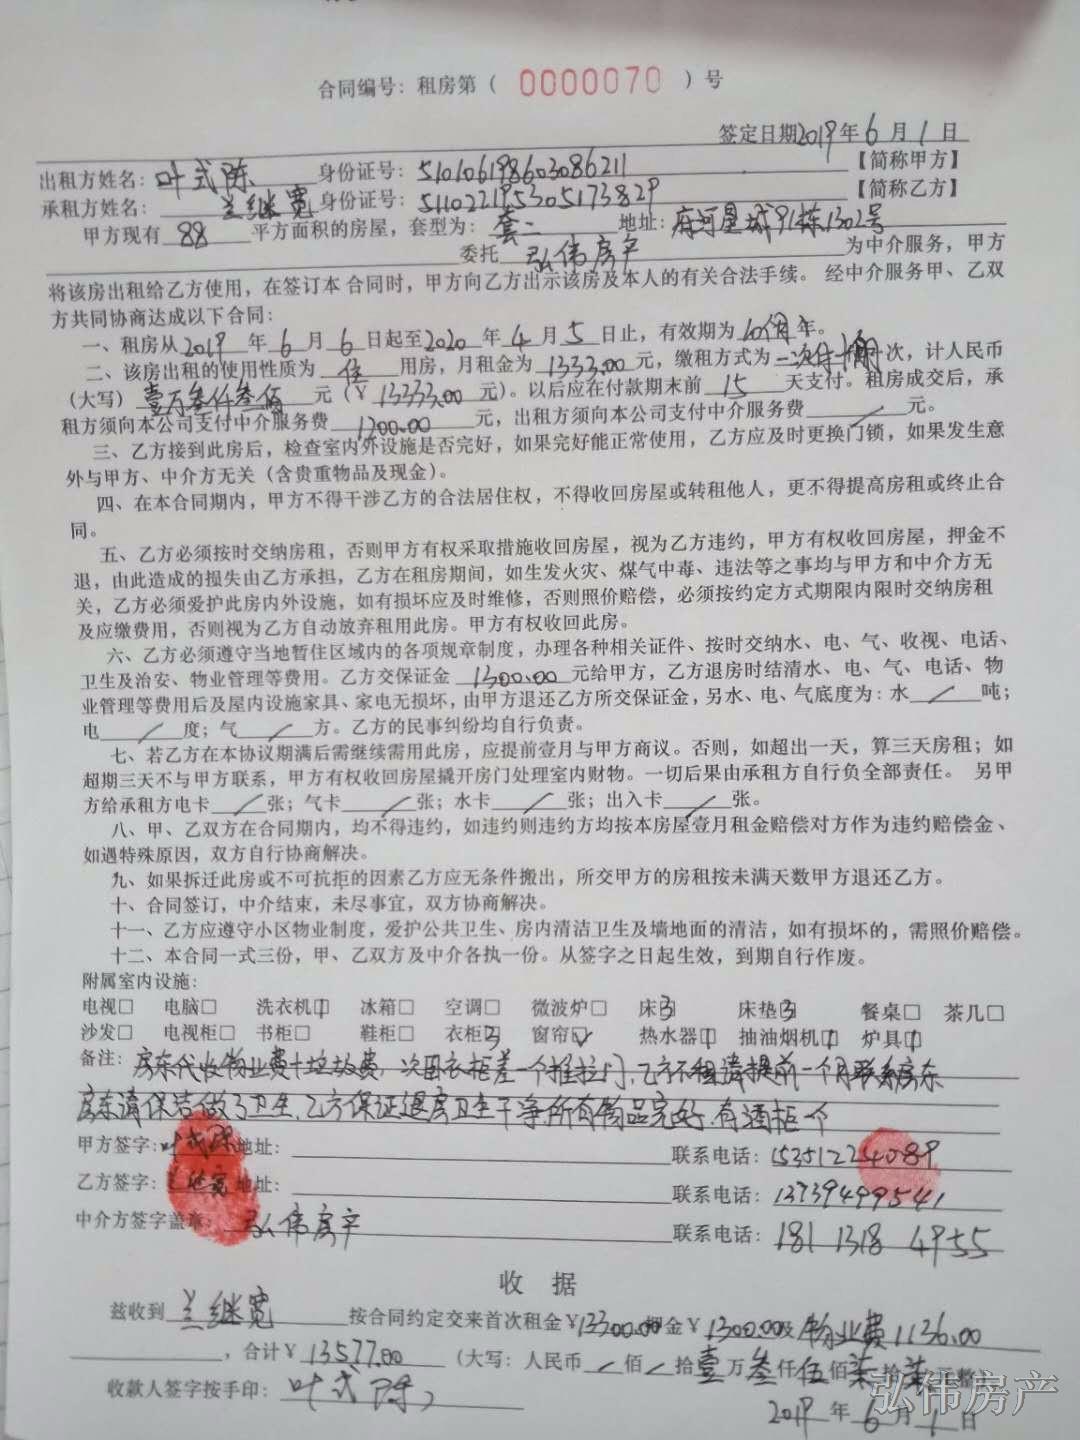 合同编号：租房第（ 0000070 ）号
签定日期2019年6月1日
出租方姓名：叶式陈 身份证号：510106198603086211 【简称甲方】
承租方姓名：兰继宽 身份证号：511022195305173829 【简称乙方】
甲方现有 88 平方面积的房屋，套型为：套二 地址：府河星城91栋1302号
委托 弘伟房产 为中介服务，甲方
将该房出租给乙方使用，在签订本合同时，甲方向乙方出示该房及本人的有关合法手续。 经中介服务甲、乙双
方共同协商达成以下合同：
一、租房从2019年6月6日起至2020年4月5日止，有效期为10个月年。
二、该房出租的使用性质为 住 用房，月租金为 1333.00 元，缴租方式为一次付 次，计人民币
（大写）壹万叁仟叁佰 元（¥ 13333.00 元）。以后应在付款期末前 15 天支付。租房成交后，承
租方须向本公司支付中介服务费 1200.00 元，出租方须向本公司支付中介服务费 / 元。
三、乙方接到此房后，检查室内外设施是否完好，如果完好能正常使用，乙方应及时更换门锁，如果发生意
外与甲方、中介方无关（含贵重物品及现金）。
四、在本合同期内，甲方不得干涉乙方的合法居住权，不得收回房屋或转租他人，更不得提高房租或终止合
同。
五、乙方必须按时交纳房租，否则甲方有权采取措施收回房屋，视为乙方违约，甲方有权收回房屋，押金不
退，由此造成的损失由乙方承担，乙方在租房期间，如生发火灾、煤气中毒、违法等之事均与甲方和中介方无
关，乙方必须爱护此房内外设施，如有损坏应及时维修，否则照价赔偿，必须按约定方式期限内限时交纳房租
及应缴费用，否则视为乙方自动放弃租用此房。甲方有权收回此房。
六、乙方必须遵守当地暂住区域内的各项规章制度，办理各种相关证件、按时交纳水、电、气、收视、电话、
卫生及治安、物业管理等费用。乙方交保证金 1300.00 元给甲方，乙方退房时结清水、电、气、电话、物
业管理等费用后及屋内设施家具、家电无损坏，由甲方退还乙方所交保证金，另水、电、气底度为：水 / 吨；
电 / 度；气 / 方。乙方的民事纠纷均自行负责。
七、若乙方在本协议期满后需继续需用此房，应提前壹月与甲方商议。否则，如超出一天，算三天房租；如
超期三天不与甲方联系，甲方有权收回房屋撬开房门处理室内财物。一切后果由承租方自行负全部责任。 另甲
方给承租方电卡 / 张；气卡 / 张；水卡 / 张；出入卡 / 张。
八、甲、乙双方在合同期内，均不得违约，如违约则违约方均按本房屋壹月租金赔偿对方作为违约赔偿金、
如遇特殊原因，双方自行协商解决。
九、如果拆迁此房或不可抗拒的因素乙方应无条件搬出，所交甲方的房租按未满天数甲方退还乙方。
十、合同签订，中介结束，未尽事宜，双方协商解决。
十一、乙方应遵守小区物业制度，爱护公共卫生、房内清洁卫生及墙地面的清洁，如有损坏的，需照价赔偿。
十二、本合同一式三份，甲、乙双方及中介各执一份。从签字之日起生效，到期自行作废。
附属室内设施：
电视□ 电脑□ 洗衣机1 冰箱□ 空调□ 微波炉□ 床3 床垫3 餐桌□ 茶几□
沙发□ 电视柜□ 书柜□ 鞋柜□ 衣柜3 窗帘☑ 热水器1 抽油烟机1 炉具1
备注：房东代收物业费+垃圾费，次卧衣柜差一个推拉门，乙方不租请提前一个月联系房东
房东请保洁做了卫生，乙方保证退房卫生干净，所有物品完好，有酒柜一个
甲方签字：叶式陈 地址： 联系电话：15351224089
乙方签字：兰继宽 地址： 联系电话：13739499541
中介方签字盖章：弘伟房产 联系电话：181 1318 4955
收 据
兹收到 兰继宽 按合同约定交来首次租金¥13300.00 押金¥1300.00及 物业费1136.00
，合计¥ 13577.00 （大写：人民币 / 佰 / 拾壹万叁仟伍佰柒拾柒元整）
收款人签字按手印：叶式陈
2019年6月1日
弘伟房产